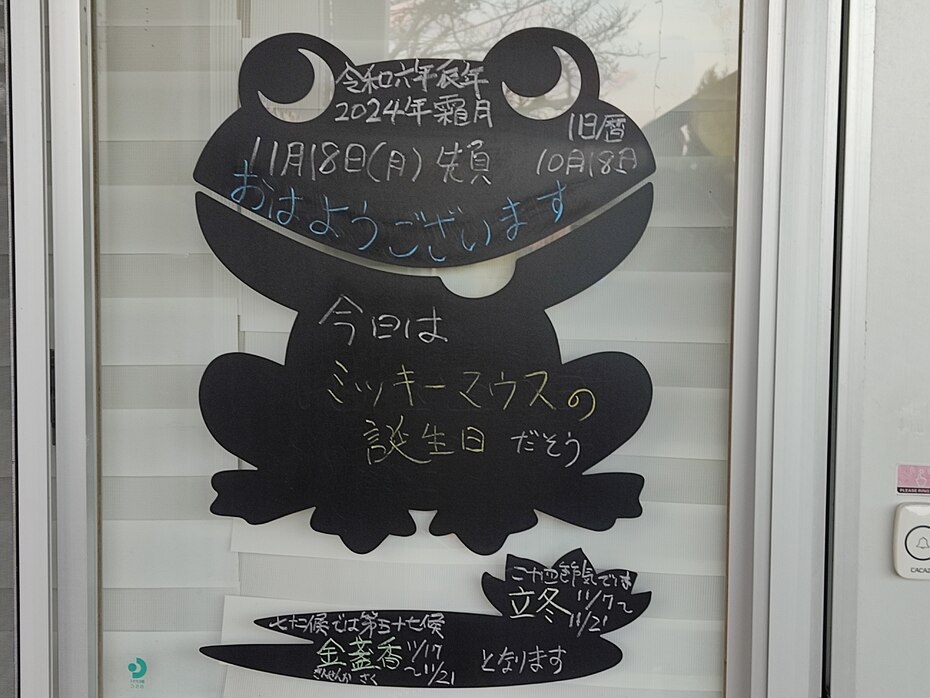 令和六年辰年
2024年霜月
旧暦
11月18日(月) 先負 10月18日
おはようございます
今日は
ミッキーマウスの
誕生日 だそう
二十四節気では
立冬 11/7〜
11/21
七十二候では第五十七候
金盞香 11/17
〜11/21 となります
きんせんか さく
PLEASE RING